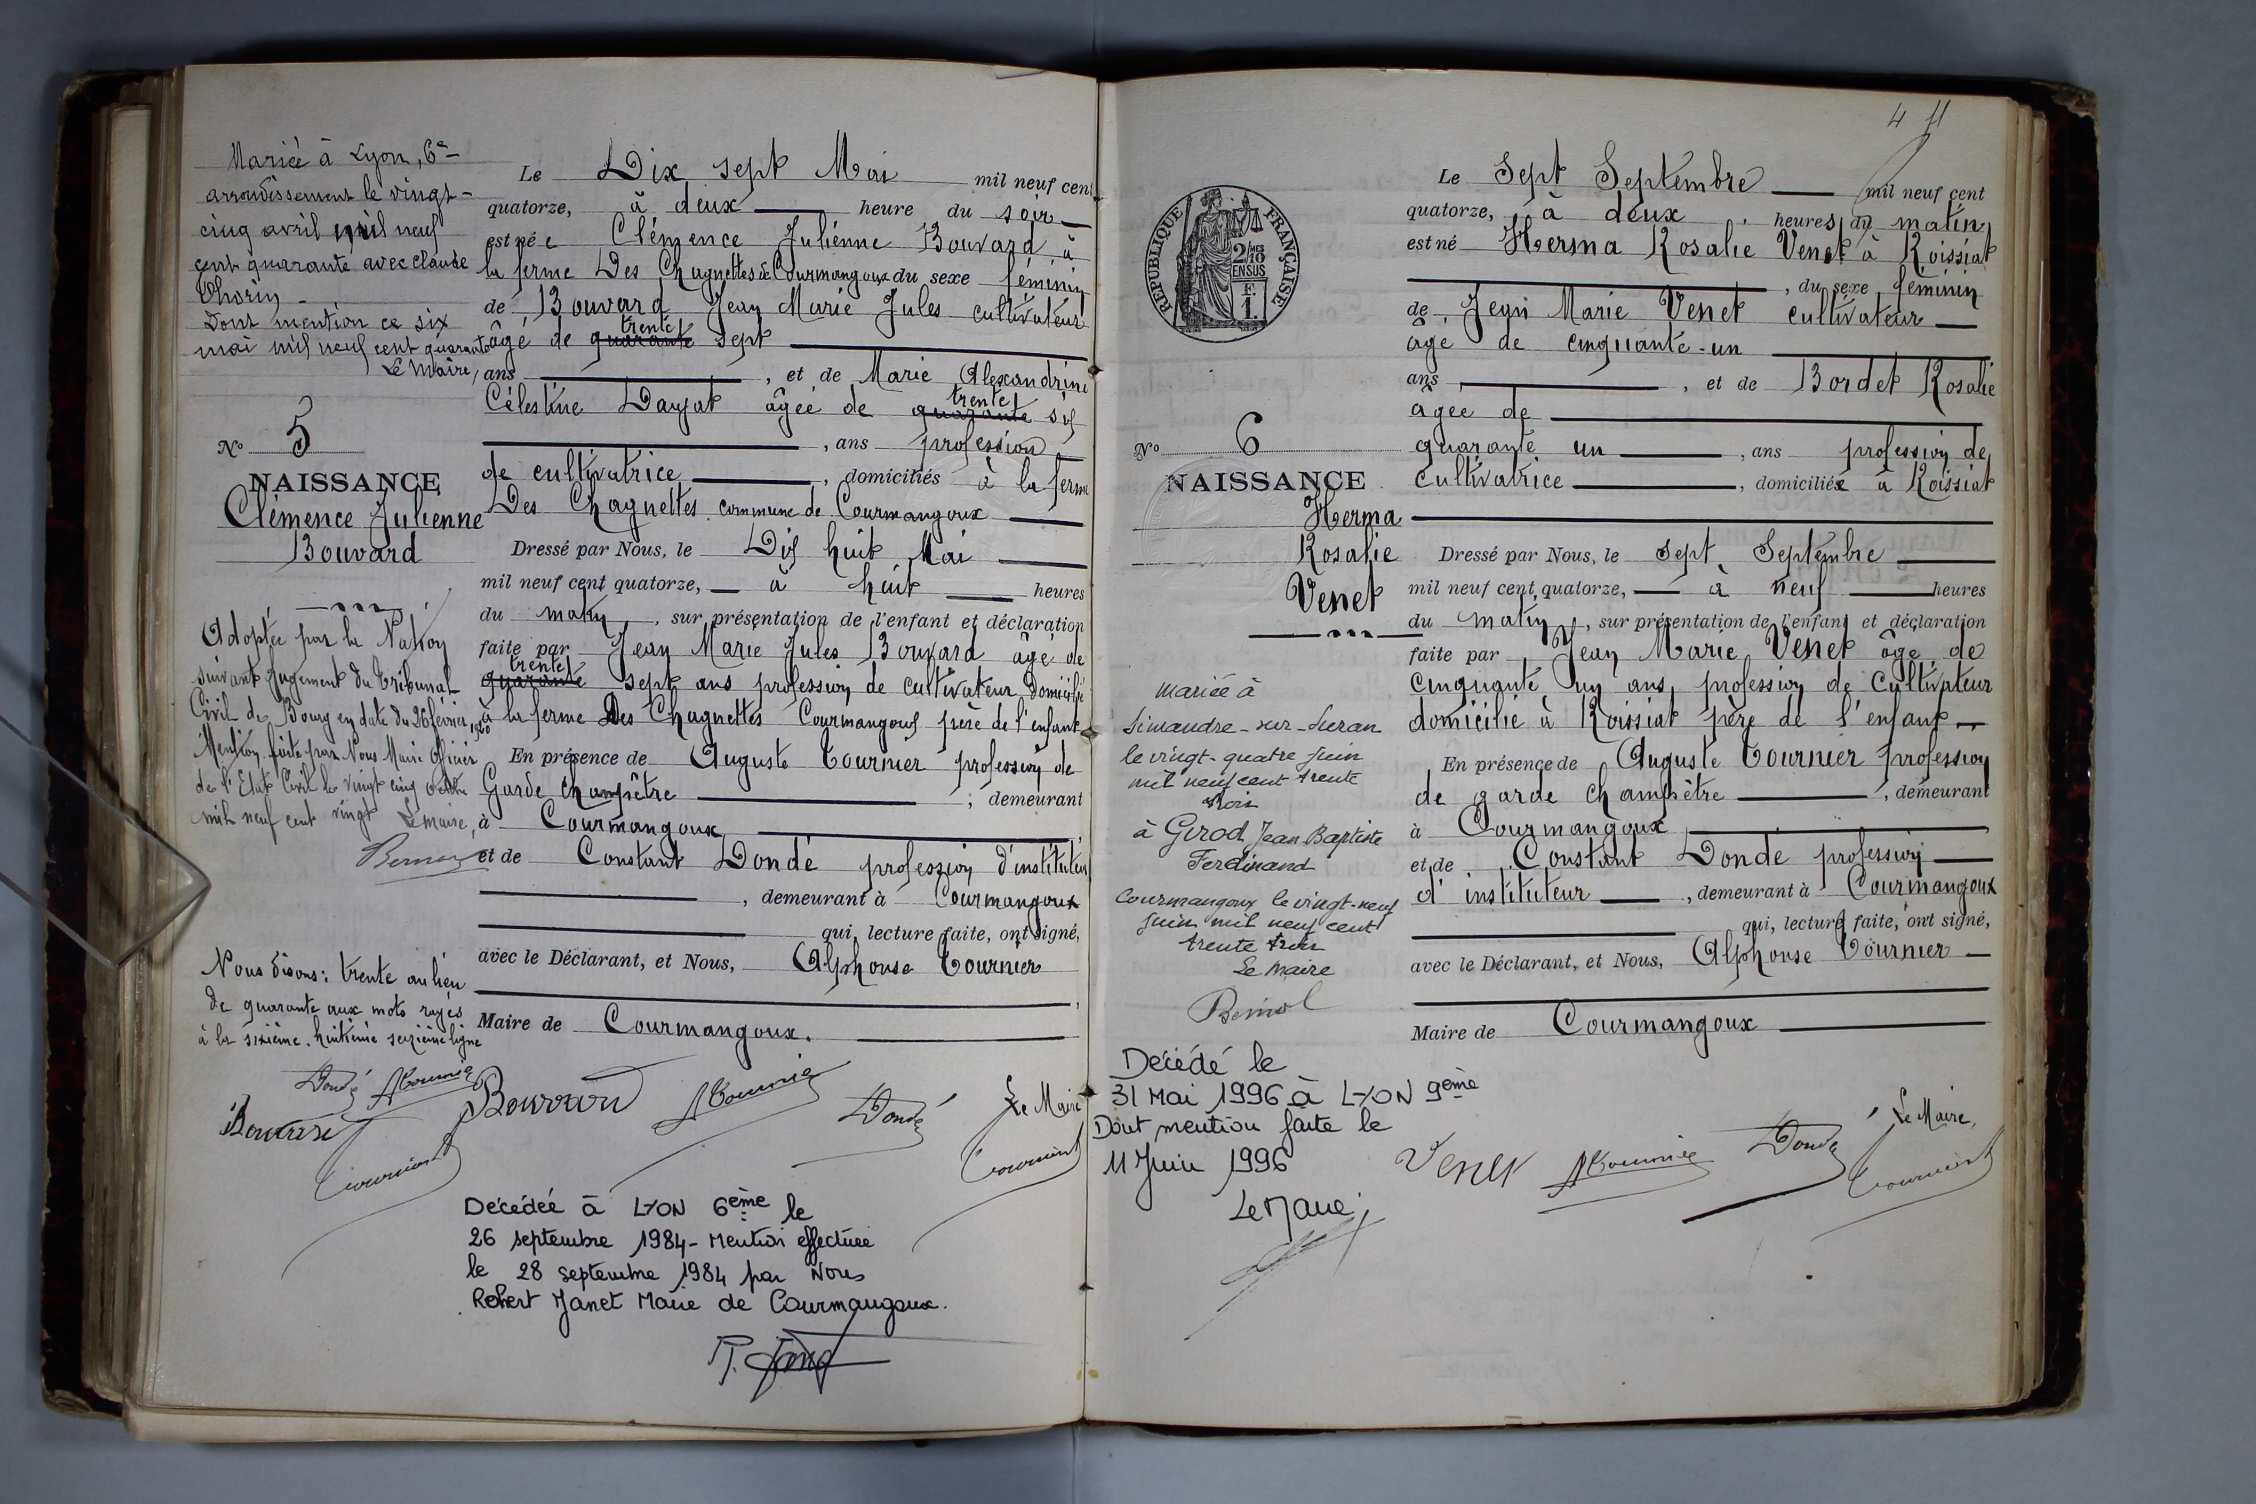 Mariée à Lyon, 6e
arrondissement le vingt-
cinq avril mil neuf
cent quarante avec Claude
Thorin
Dont mention ce six
mai mil neuf cent quarante
Le Maire,
No 5
NAISSANCE
Clémence Julienne
Bouvard
Adoptée par la Nation
suivant Jugement du Tribunal
Civil de Bourg en date du 26 février 1920
Mention faite par Nous Maire Officier
de l'Etat Civil le vingt cinq
mil neuf cent vingt Le maire,
Nous disons: trente au lieu
de quarante aux mots rayés
à la sixième. huitième seizième ligne
Dondé ATournier
Bouvard
Tournier
Le Dix sept Mai mil neuf cent
quatorze, à deux heure du soir
est née Clémence Julienne Bouvard, à
la ferme Des Chagnettes à Courmangoux du sexe féminin
de Bouvard Jean Marie Jules cultivateur
trente
âgé de quarante sept
ans, et de Marie Alexandrine
trente
Célestine Dayat âgée de quarante six
, ans profession
de cultivatrice, domiciliés à la ferme
Des Chagnettes commune de Courmangoux
Dressé par Nous, le Dix huit Mai
mil neuf cent quatorze, à huit heures
du matin, sur présentation de l'enfant et déclaration
faite par Jean Marie Jules Bouvard âgé de
trente
quarante sept ans profession de cultivateur domicilié
à la ferme Des Chagnettes Courmangoux père de l'enfant
En présence de Auguste Tournier profession de
Garde champêtre ; demeurant
à Courmangoux,
et de Constant Dondé profession d'instituteur
, demeurant à Courmangoux
qui, lecture faite, ont signé,
avec le Déclarant, et Nous, Alphonse Tournier
,
Maire de Courmangoux.
Bouvard ATournier Dondé Le Maire
Tournier
Décédée à LYON 6ème le
26 septembre 1984 - Mention effectuée
le 28 septembre 1984 par Nous
Robert Janet Maire de Courmangoux.
R. Janet
4 11
RÉPUBLIQUE FRANÇAISE
2/10
EN SUS
F.
1.
No 6
NAISSANCE
Herma
Rosalie
Venet
mariée à
Simandre-sur-Suran
le vingt-quatre juin
mil neuf cent trente
trois
à Girod Jean Baptiste
Ferdinand
Courmangoux le vingt-neuf
juin mil neuf cent
trente trois
Le Maire
Décédé le
31 Mai 1996 à LYON 9ème
Dont mention faite le
11 Juin 1996
Le Maire,
Le Sept Septembre mil neuf cent
quatorze, à deux heures du matin,
est né Herma Rosalie Venet à Roissiat
, du sexe féminin
de Jean Marie Venet cultivateur
âgé de cinquante-un
ans, et de Bordet Rosalie
âgée de
quarante un, ans profession de
cultivatrice, domiciliée à Roissiat
Dressé par Nous, le sept Septembre
mil neuf cent quatorze, à neuf heures
du matin, sur présentation de l'enfant et déclaration
faite par Jean Marie Venet âgé de
cinquante un ans, profession de Cultivateur
domicilié à Roissiat père de l'enfant
En présence de Auguste Tournier profession
de garde champêtre, demeurant
à Courmangoux
et de Constant Dondé profession
d'instituteur, demeurant à Courmangoux
qui, lecture faite, ont signé,
avec le Déclarant, et Nous, Alphonse Tournier
Maire de Courmangoux
Venet ATournier Dondé Le Maire,
Tournier